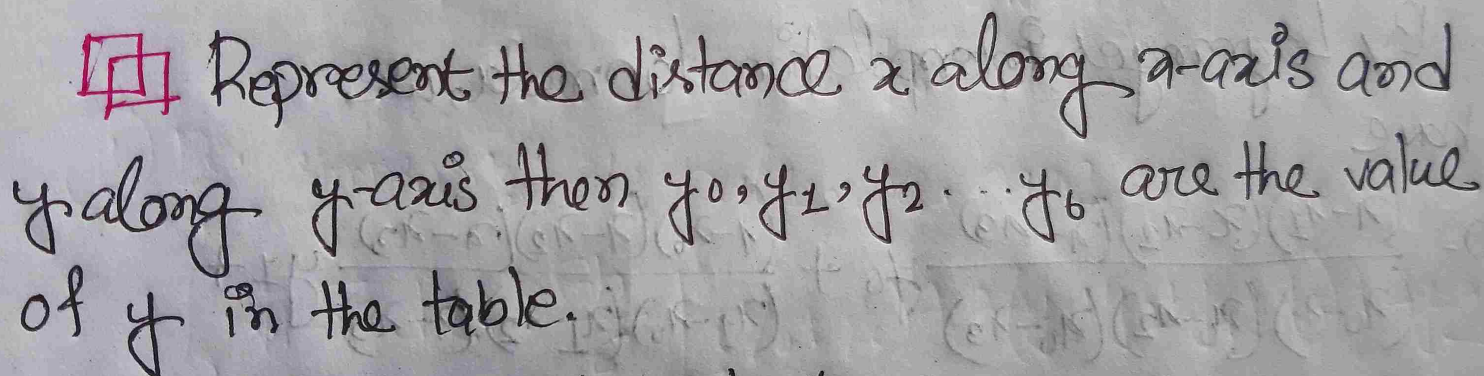 Represent the distance x along x-axis and
y along y-axis then y0, y1, y2 ... y6 are the value
of y in the table.